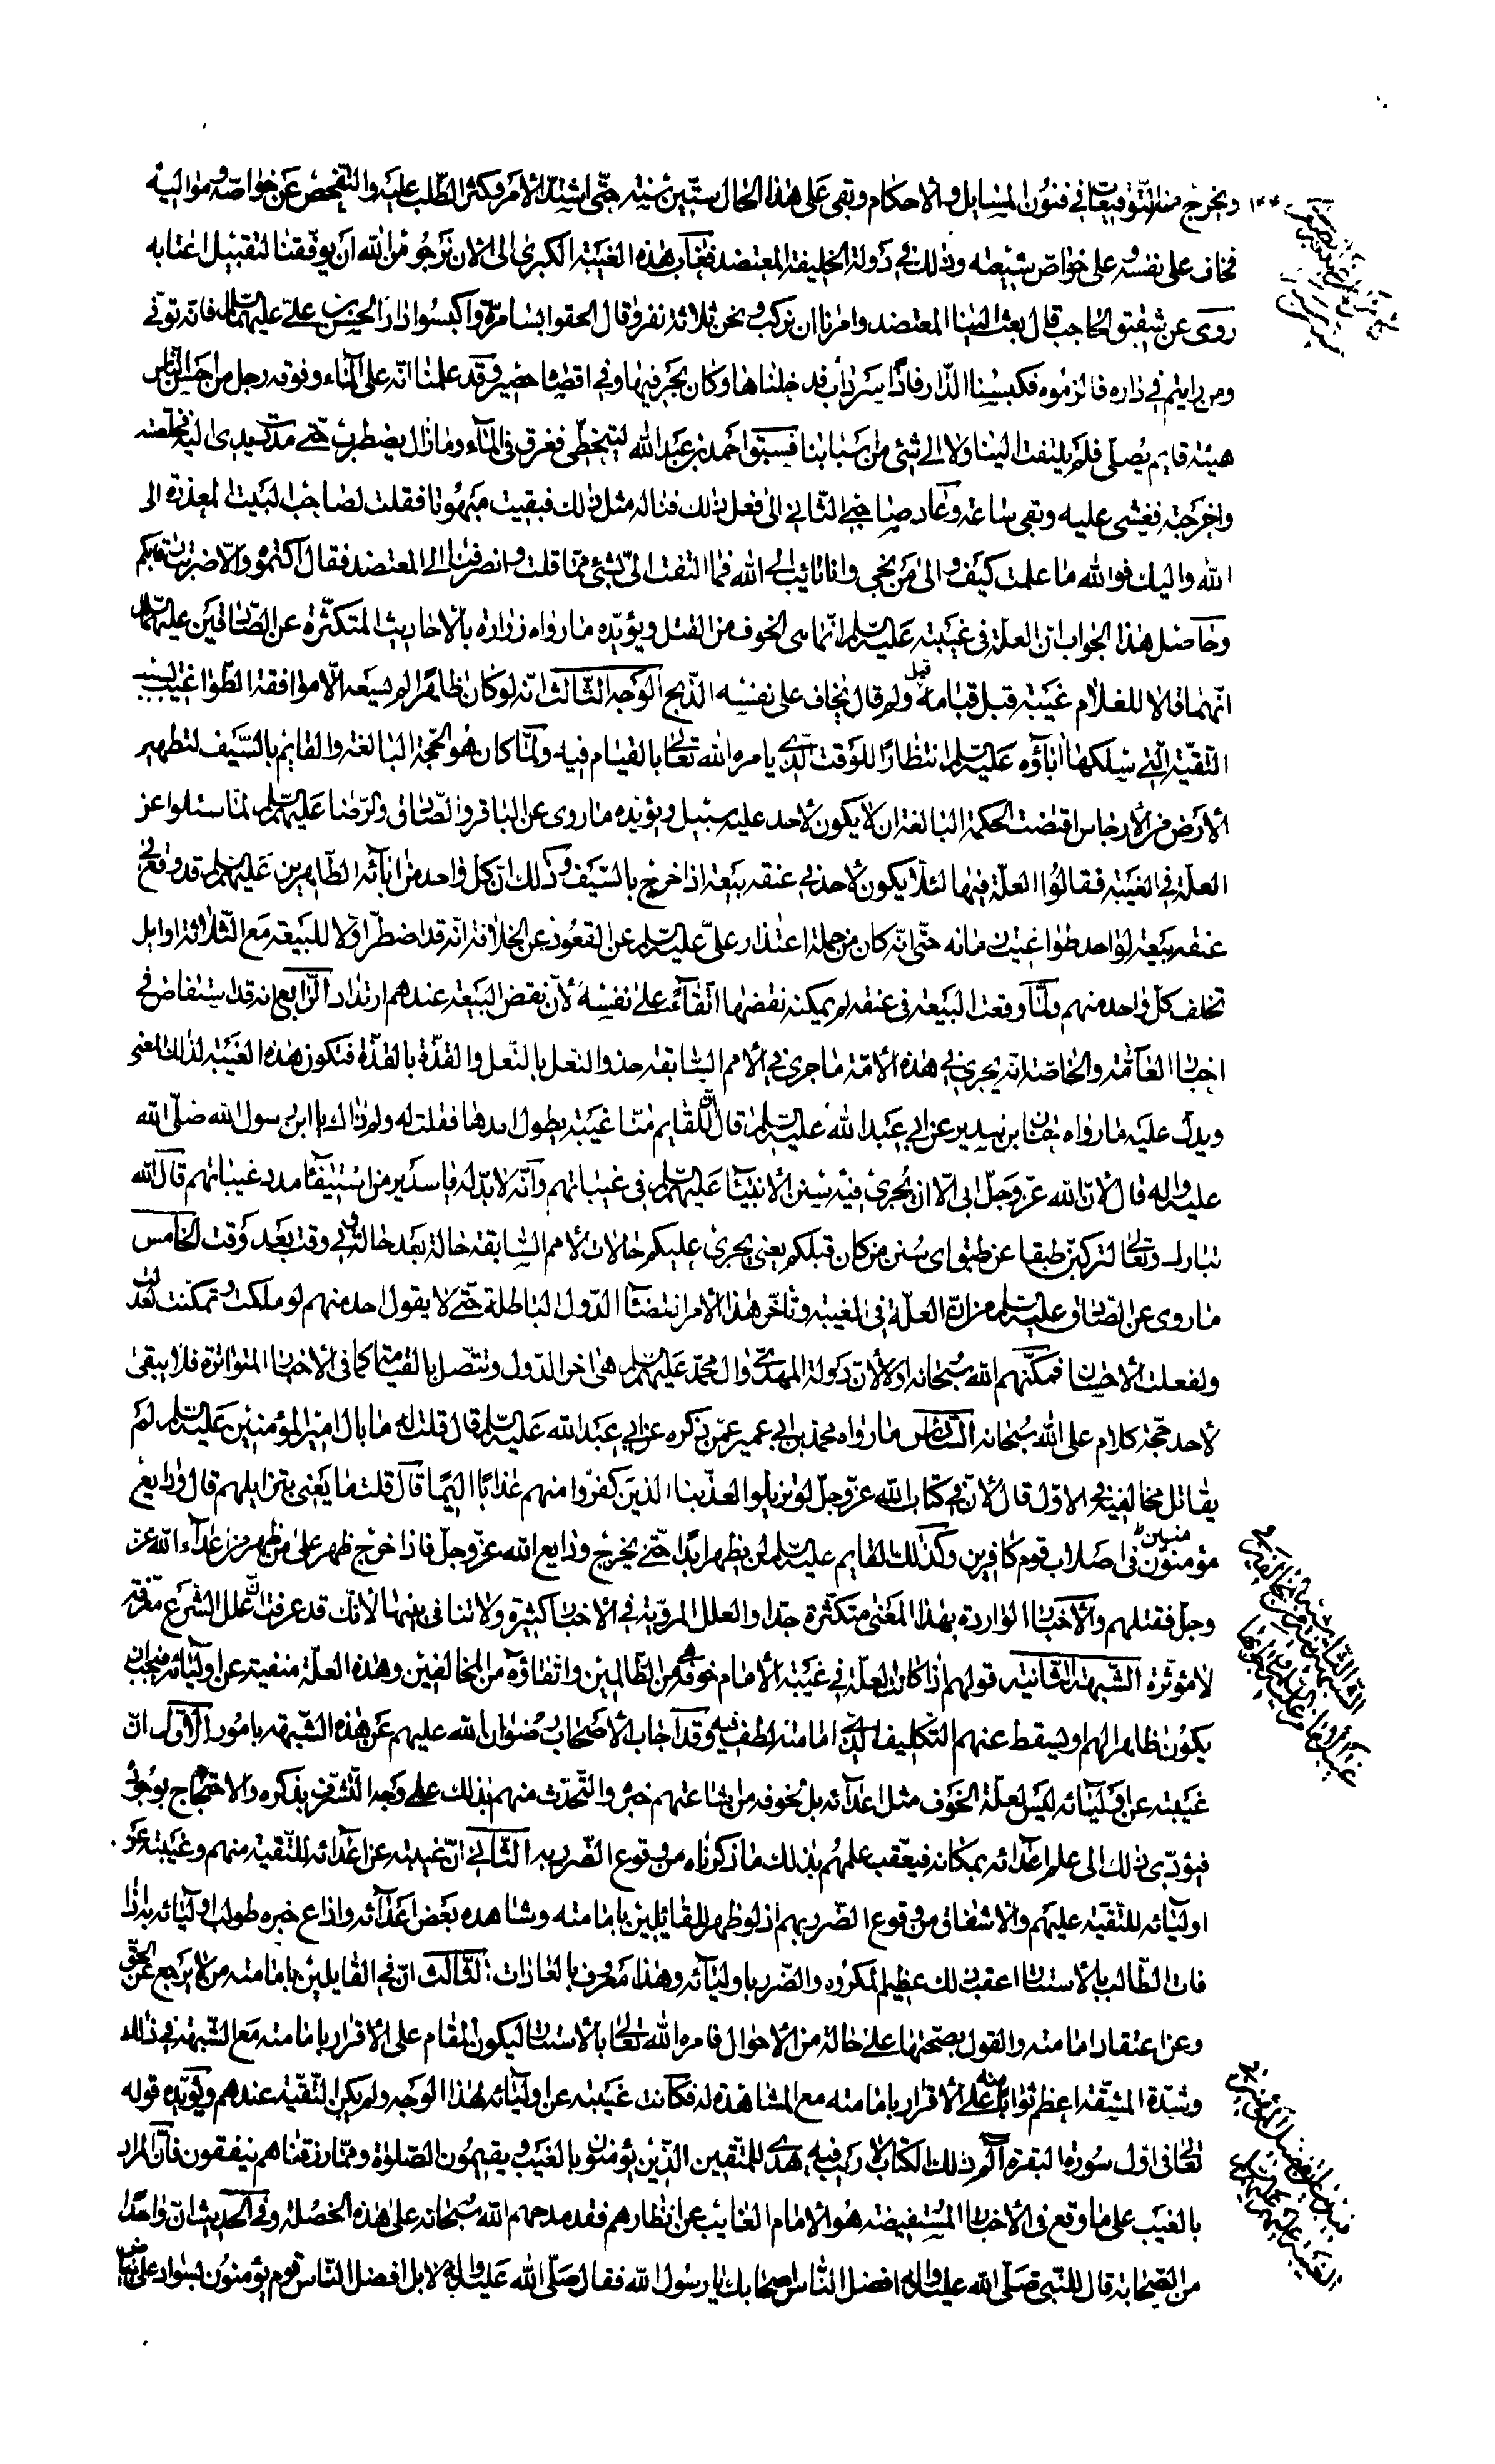 ويخرج منه التوقيعات في فنون المسايل والأحكام وبقى على هذا الحال ستين سنة حتى اشتد الأمر وكثر الطلب عليه والتفحص عن خواصه ومواليه
فخاف على نفسه وعلى خواص شيعته وذلك في دولة الخليفة المعتضد فغاب هذه الغيبة الكبرى الى الان نرجو من الله ان يوفقنا لتقبيل اعتابه
روى عن الحاجب قال بعث الينا المعتضد وامرنا ان نركب ونحن ثلاثة نفر وقال الحقوا بسامرة واكبسوا دار الحسن بن علي عليهما السلام فانه توفي
ومن رايتم في داره فاتوني براسه فكبسنا الدار فاذا سرداب فدخلناها وكان بحر فيها وفي اقصاه حصير وقد علمنا انه على الماء وفوقه رجل من احسن الناس
هيئة قايم يصلى فلم يلتفت الينا ولا الى شئ من اسبابنا فسبق احمد بن عبد الله ليتخطى فغرق في الماء وما زال يضطرب حتى مددت يدى اليه فخلصته
واخرجته فغشى عليه وبقى ساعة وعاد صاحبي الثاني الى فعل ذلك فناله مثل ذلك فبقيت مبهوتا فقلت لصاحب البيت المعذرة الى
الله واليك فوالله ما علمت كيف والى من نجئ وانا تائب الى الله فما التفت الى بشئ مما قلت وانصرفنا الى المعتضد فقال اكتموه والا ضربت رقابكم
وحاصل هذا الجواب ان العلة في غيبته عليه السلم انما هى الخوف من القتل ويؤيده ما رواه زرارة بالأحاديث المتكثرة عن الصادقين عليهما السلم
انهما قالا للغلام غيبة قبل قيامه قيل ولم قال يخاف على نفسه الذبح الوجه الثالث انه لو كان ظاهرا لم يسعه الا موافقة الطواغيت لسبب
التقية التي سلكها اباؤه عليهم السلم انتظارا للوقت الذي يامره الله تعالى بالقيام فيه ولما كان هو الحجة البالغة والقايم بالسيف لتطهير
الأرض من الأرجاس اقتضت الحكمة البالغة ان لا يكون لأحد عليه سبيل ويؤيده ما روى عن الباقر والصادق والرضا عليهم السلم لما سئلوا عن
العلة في الغيبة فقالوا العلة فيها لئلا يكون لأحد في عنقه بيعة اذا خرج بالسيف وذلك ان كل واحد من ابائه الطاهرين عليهم السلم قد وقع في
عنقه بيعة لواحد من طواغيت زمانه حتى انه كان من جملة اعتذار علي عليه السلم عن القعود عن الخلافة انه قد اضطر اولا للبيعة مع الثلاثة اوايل
تخلف كل واحد منهم ولما وقعت البيعة في عنقه لم يمكنه نقضها اتقاء على نفسه لأن نقض البيعة عندهم ارتداد الرابع انه قد استفاض في
اخبار العامة والخاصة انه يجري في هذه الأمة ما جرى في الأمم السابقة حذو النعل بالنعل والقذة بالقذة فتكون هذه الغيبة لذلك المعنى
ويدل عليه ما رواه حنان بن سدير عن ابي عبد الله عليه السلم قال ان للقايم منا غيبة يطول امدها فقلت له ولم ذاك يا ابن رسول الله صلى الله
عليه واله قال لأن الله عز وجل ابى الا ان يجرى فيه سنن الأنبياء عليهم السلم في غيباتهم وانه لا بد له يا سدير من استيفاء مدد غيباتهم قال الله
تبارك وتعالى لتركبن طبقا عن طبق اى سنن من كان قبلكم يعنى يجرى عليكم حالات الأمم السابقة حالة بعد حالة وفي وقت بعد وقت الخامس
ما روى عن الصادق عليه السلم من ان العلة في الغيبة وتأخر هذا الأمر انقضاء الدول الباطلة حتى لا يقول احد منهم لو ملكت وتمكنت لعدلت
ولفعلت الأحسان فمكنهم الله سبحانه اولا لأن دولة المهدي وال محمد عليهم السلم هى اخر الدول وتتصل بالقيمة كما في الأخبار المتواترة فلا يبقى
لأحد حجة كلام على الله سبحانه السادس ما رواه محمد بن ابي عمير عمن ذكره عن ابي عبد الله عليه السلم قال قلت له ما بال امير المؤمنين عليه السلم لم
يقاتل مخالفيه في الاول قال لأن في كتاب الله عز وجل لو تزيلوا لعذبنا الذين كفروا منهم عذابا اليما قال قلت ما يعنى بتزايلهم قال ودايع
مؤمنون في اصلاب قوم كافرين وكذلك القايم عليه السلم لن يظهر ابدا حتى يخرج ودايع الله عز وجل فاذا خرج ظهر على من ظهر من اعداء الله عز
وجل فقتلهم والأخبار الواردة بهذا المعنى متكثرة جدا والعلل المروية في الاخبار كثيرة ولا تنافي بينها لانك قد عرفت ان علل الشرع معرفة
لا مؤثرة الشبهة الثانية قولهم اذا كانت العلة في غيبة الأمام خوفه من الظالمين واتقاؤه من المخالفين وهذه العلة منفية عن اوليائه فيجب ان
يكون ظاهرا لهم او يسقط عنهم التكليف الذي امامته لطف فيه وقد اجاب الأصحاب رضوان الله عليهم عن هذه الشبهة بامور الأول ان
غيبته عن اوليائه ليس لعلة الخوف مثل اعدائه بل لخوفه من اشاعتهم خبره والتحدث منهم بذلك على وجه التشرف بذكره والاحتجاج بوجوده
فيؤدى ذلك الى علم اعدائه بمكانه فيعقب علمهم بذلك ما ذكرناه من وقوع الضرر به الثاني ان غيبته عن اعدائه للتقية منهم وغيبته عن
اوليائه للتقية عليهم والاشفاق من وقوع الضرر بهم اذ لو ظهر للقايلين بامامته وشاهده بعض اعدائه واذاع خبره طولب اولياؤه به فاذا
فات الطالب بالأستتار اعقب ذلك عظيم المكروه والضرر باوليائه وهذا معروف بالعادات الثالث ان في القايلين بامامته من لا يرجع عن الحق
وعن اعتقاد امامته والقول بصحتها على حالة من الأحوال فامره الله تعالى بالأستتار ليكون المقام على الأقرار بامامته مع الشبهة في ذلك
وشدة المشقة اعظم ثوابا منه على الأقرار بامامته مع المشاهدة له فكانت غيبته عن اوليائه لهذا الوجه ولم يكن للتقية عندهم ويؤيده قوله
تعالى في اول سورة البقرة الم ذلك الكتاب لا ريب فيه هدى للمتقين الذين يؤمنون بالغيب ويقيمون الصلوة ومما رزقناهم ينفقون فان المراد
بالغيب على ما وقع في الأخبار المستفيضة هو الأمام الغايب عن انظارهم فقد مدحهم الله سبحانه على هذه الخصلة وفي الحديث ان واحدا
من الصحابة قال للنبي صلى الله عليه واله افضل الناس اصحابك يا رسول الله فقال صلى الله عليه واله لا بل افضل الناس قوم يؤمنون بسواد على بياض